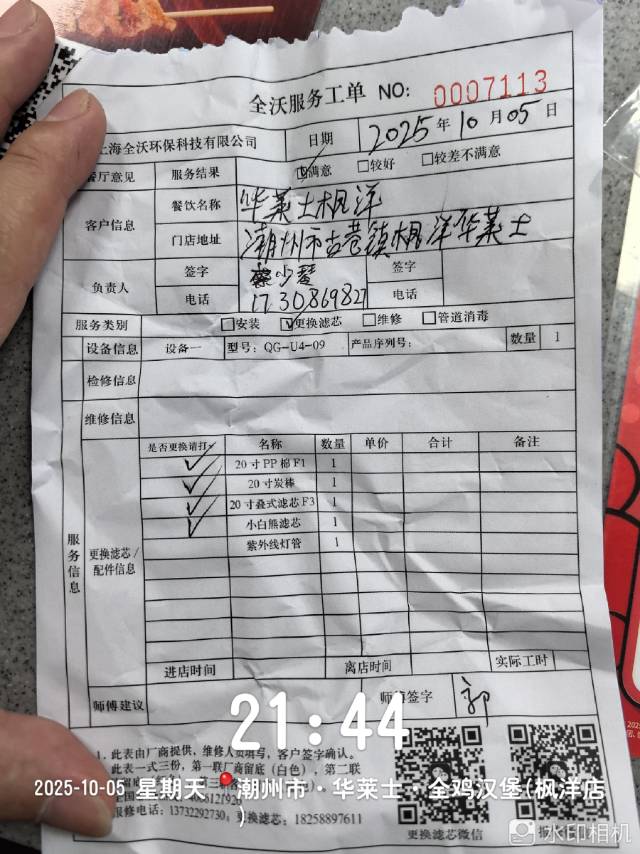 全沃服务工单 NO: 0007113
上海全沃环保科技有限公司 日期 2025年10月05日
餐厅意见 服务结果 满意 较好 较差不满意
客户信息 餐饮名称 华莱士枫洋
门店地址 潮州市古巷镇枫洋华莱士
负责人 签字 签字
电话 1730869827 电话
服务类别 安装 更换滤芯 维修 管道消毒
设备信息 设备一 型号: QG-U4-09 产品序列号: 数量 1
检修信息
维修信息
服务信息
更换滤芯/配件信息
是否更换请打✓ 名称 数量 单价 合计 备注
✓ 20寸PP棉F1 1
✓ 20寸炭棒 1
✓ 20寸叠式滤芯F3 1
✓ 小白熊滤芯 1
紫外线灯管 1
进店时间 离店时间 实际工时
师傅建议 师傅签字 郭
21:44
1. 此表由厂商提供,维修人员填写,客户签字确认。
此表一式三份,第一联厂商留底(白色),第二联
2025-10-05 星期天 潮州市·华莱士·全鸡汉堡(枫洋店)
报修电话: 13732292730; 更换滤芯: 18258897611
更换滤芯微信
水印相机